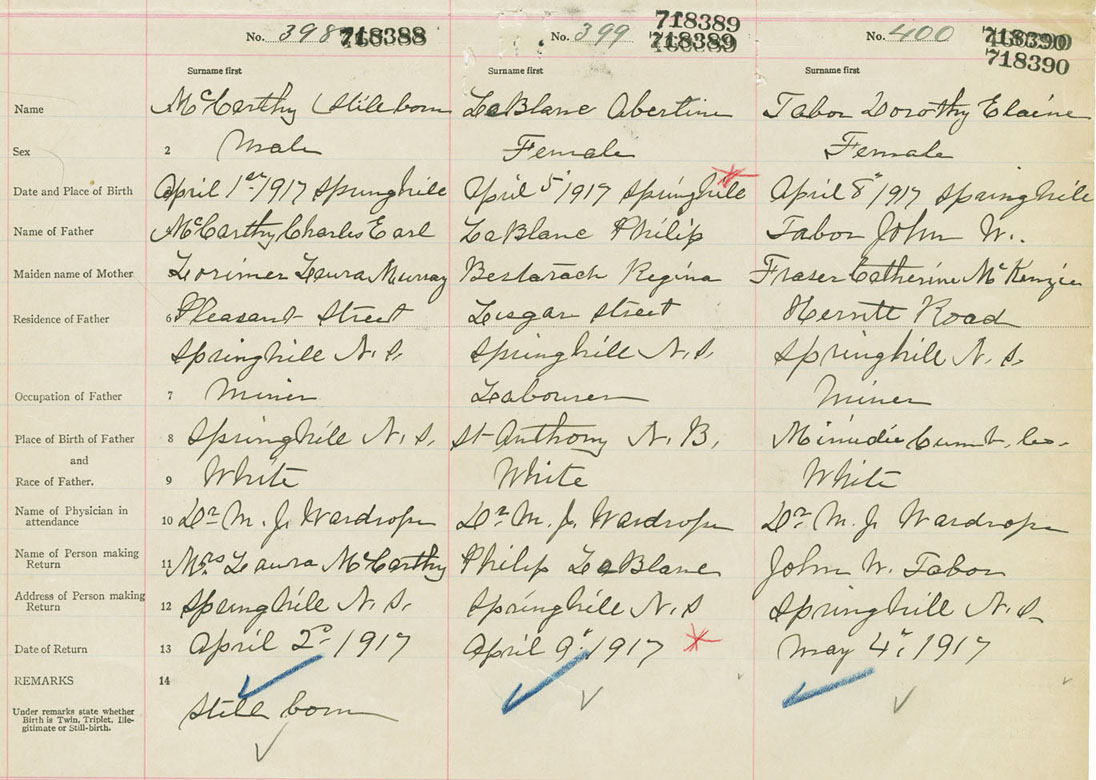 No. 398 718388 No. 399 718389 718389 No. 400 718390 718390
Surname first Surname first Surname first
Name McCarthy (Stillborn LeBlanc Abertine Tabor Dorothy Elaine
Sex 2 Male Female Female
Date and Place of Birth April 1st 1917 Springhill April 5" 1917 Springhill April 8" 1917 Springhill
Name of Father McCarthy Charles Earl LeBlanc Philip Tabor John W.
Maiden name of Mother Lorimer Laura Murray Regina Fraser Catherine McKenzie
Residence of Father 6 Pleasant Street Lisgar Street Road
Springhill N.S. Springhill N.S. Springhill N.S.
Occupation of Father 7 Miner Labourer Miner
Place of Birth of Father 8 Springhill N.S. St Anthony N.B. Minudie Cumb. Co.
and
Race of Father. 9 White White White
Name of Physician in
attendance 10 Dr M. J. Wardrope Dr M. J. Wardrope Dr M. J. Wardrope
Name of Person making
Return 11 Mrs Laura McCarthy Philip LeBlanc John W. Tabor
Address of Person making
Return 12 Springhill N.S. Springhill N.S Springhill N.S.
Date of Return 13 April 2nd 1917 April 9" 1917 May 4" 1917
REMARKS 14
Under remarks state whether
Birth is Twin, Triplet, Ille-
gitimate or Still-birth.
Still born